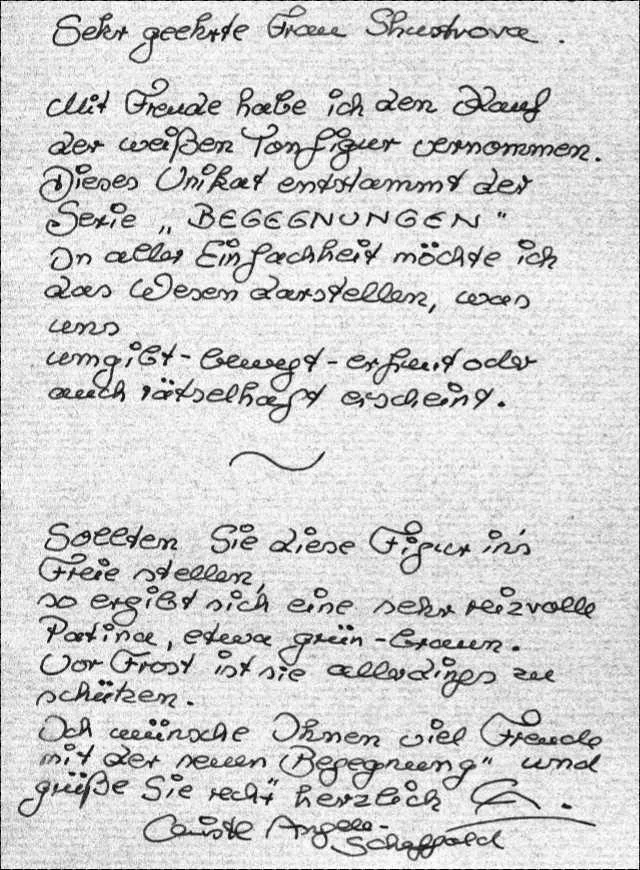 Sehr geehrte Frau Shustrova.
Mit Freude habe ich den Kauf
der weißen Tonfigur vernommen.
Dieses Unikat entstammt der
Serie „BEGEGNUNGEN"
In aller Einfachheit möchte ich
das Wesen darstellen, was
uns
umgibt - bewegt - erfreut oder
auch rätselhaft erscheint.
Sollten Sie diese Figur in's
Freie stellen,
so ergibt sich eine sehr reizvolle
Patina, etwa grün-braun.
Vor Frost ist sie allerdings zu
schützen.
Ich wünsche Ihnen viel Freude
mit der neuen Begegnung" und
grüße Sie recht herzlich
Christl Angele-
Scheffold